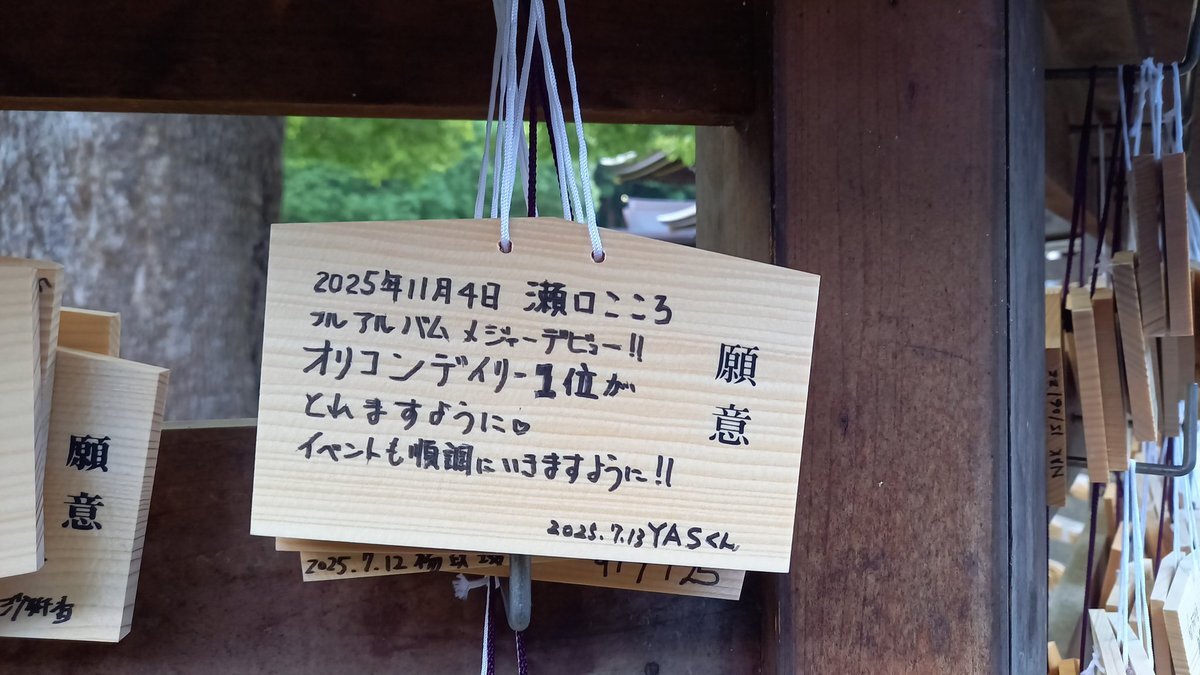 2025年11月4日 瀬口こころ
フルアルバム メジャーデビュー!!
オリコンデイリー1位が
とれますように♡
イベントも順調にいきますように!!
2025.7.13 YASくん
願意
願意
2025.7.12
NAK 15/06/25